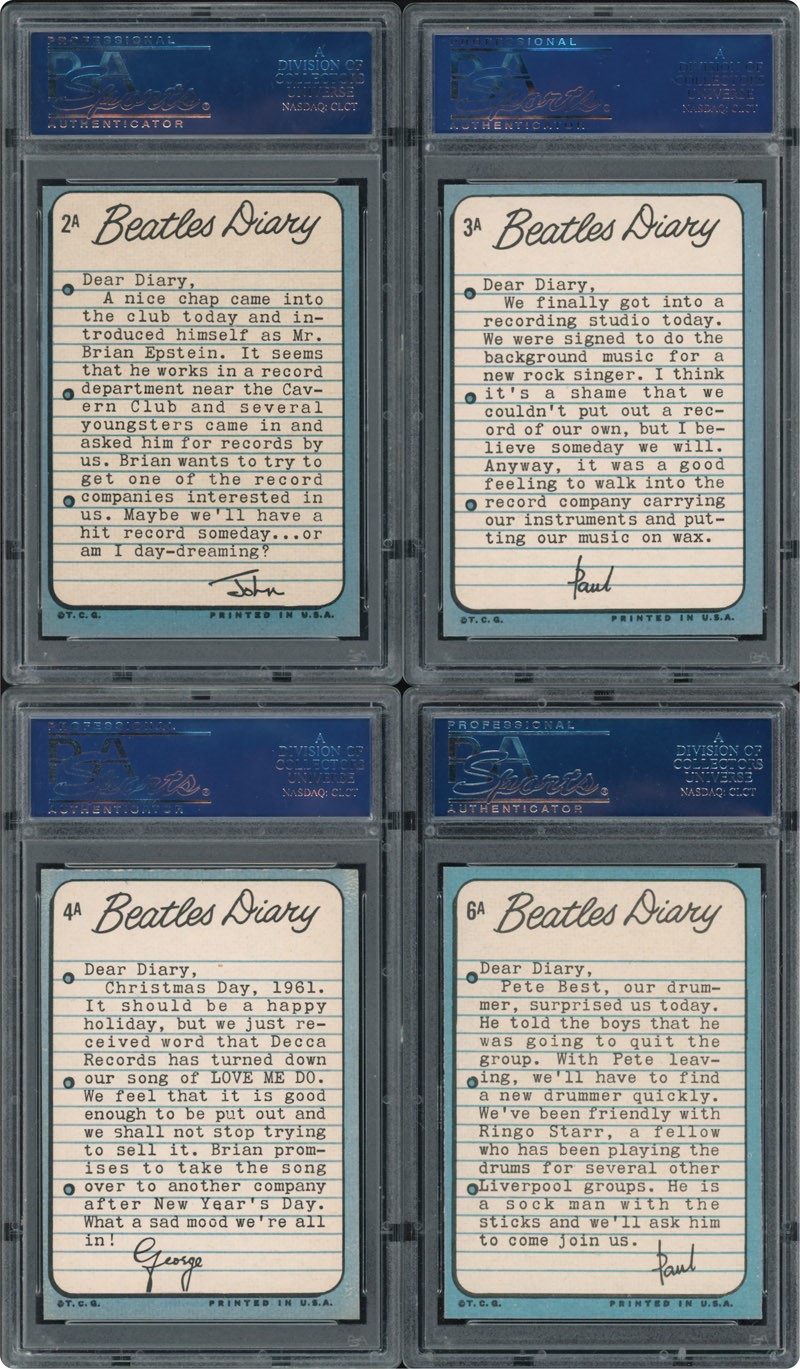 PROFESSIONAL
PSA
Sports®
AUTHENTICATOR
A
DIVISION OF
COLLECTORS
UNIVERSE
NASDAQ: CLCT
2A Beatles Diary
Dear Diary,
A nice chap came into
the club today and in-
troduced himself as Mr.
Brian Epstein. It seems
that he works in a record
department near the Cav-
ern Club and several
youngsters came in and
asked him for records by
us. Brian wants to try to
get one of the record
companies interested in
us. Maybe we'll have a
hit record someday...or
am I day-dreaming?
John
©T.C.G. PRINTED IN U.S.A.
PROFESSIONAL
PSA
Sports®
AUTHENTICATOR
A
DIVISION OF
COLLECTORS
UNIVERSE
NASDAQ: CLCT
3A Beatles Diary
Dear Diary,
We finally got into a
recording studio today.
We were signed to do the
background music for a
new rock singer. I think
it's a shame that we
couldn't put out a rec-
ord of our own, but I be-
lieve someday we will.
Anyway, it was a good
feeling to walk into the
record company carrying
our instruments and put-
ting our music on wax.
Paul
©T.C.G. PRINTED IN U.S.A.
PROFESSIONAL
PSA
Sports®
AUTHENTICATOR
A
DIVISION OF
COLLECTORS
UNIVERSE
NASDAQ: CLCT
4A Beatles Diary
Dear Diary,
Christmas Day, 1961.
It should be a happy
holiday, but we just re-
ceived word that Decca
Records has turned down
our song of LOVE ME DO.
We feel that it is good
enough to be put out and
we shall not stop trying
to sell it. Brian prom-
ises to take the song
over to another company
after New Year's Day.
What a sad mood we're all
in!
George
©T.C.G. PRINTED IN U.S.A.
PROFESSIONAL
PSA
Sports®
AUTHENTICATOR
A
DIVISION OF
COLLECTORS
UNIVERSE
NASDAQ: CLCT
6A Beatles Diary
Dear Diary,
Pete Best, our drum-
mer, surprised us today.
He told the boys that he
was going to quit the
group. With Pete leav-
ing, we'll have to find
a new drummer quickly.
We've been friendly with
Ringo Starr, a fellow
who has been playing the
drums for several other
Liverpool groups. He is
a sock man with the
sticks and we'll ask him
to come join us.
Paul
©T.C.G. PRINTED IN U.S.A.